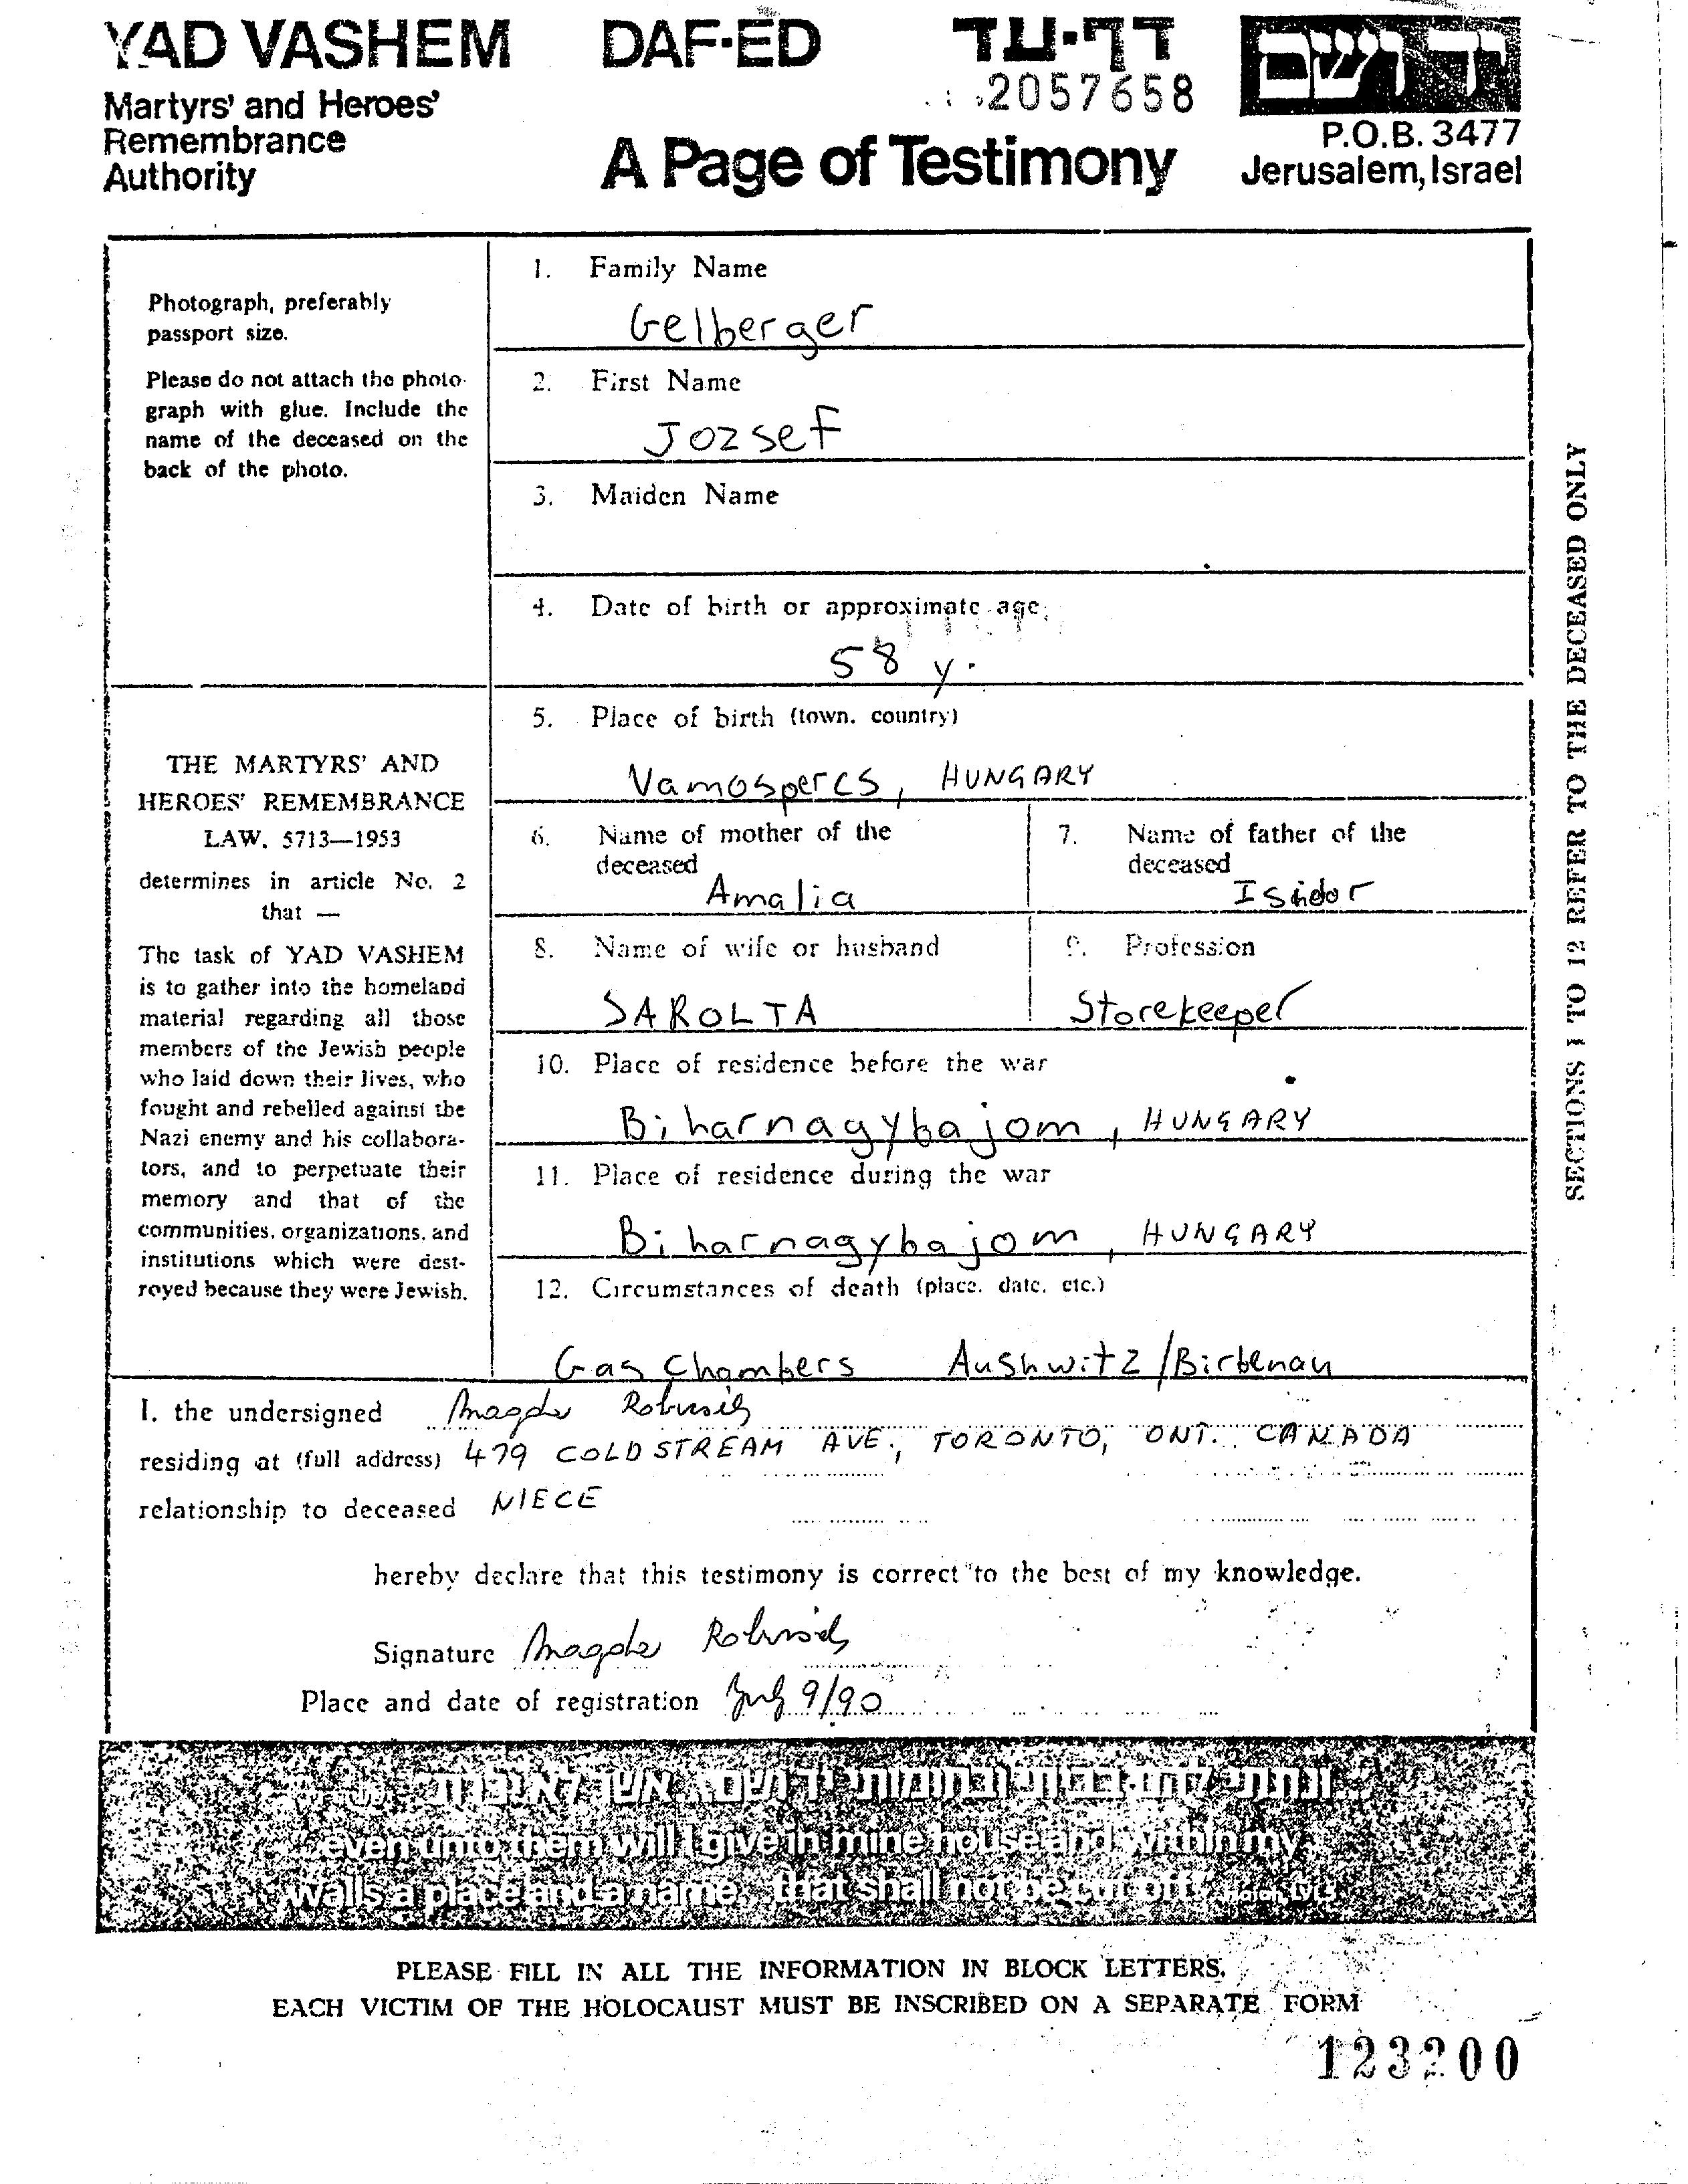 YAD VASHEM DAF-ED דף-עד יד ושם
2057658
Martyrs' and Heroes'
Remembrance
Authority
A Page of Testimony
P.O.B. 3477
Jerusalem, Israel
Photograph, preferably
passport size.
Please do not attach the photo-
graph with glue. Include the
name of the deceased on the
back of the photo.
THE MARTYRS' AND
HEROES' REMEMBRANCE
LAW, 5713—1953
determines in article No. 2
that —
The task of YAD VASHEM
is to gather into the homeland
material regarding all those
members of the Jewish people
who laid down their lives, who
fought and rebelled against the
Nazi enemy and his collabora-
tors, and to perpetuate their
memory and that of the
communities, organizations, and
institutions which were dest-
royed because they were Jewish.
1. Family Name
Gelberger
2. First Name
Jozsef
3. Maiden Name
4. Date of birth or approximate age
58 y.
5. Place of birth (town, country)
Vamospercs, HUNGARY
6. Name of mother of the
deceased
Amalia
7. Name of father of the
deceased
Isidor
8. Name of wife or husband
SAROLTA
9. Profession
Storekeeper
10. Place of residence before the war
Biharnagybajom, HUNGARY
11. Place of residence during the war
Biharnagybajom, HUNGARY
12. Circumstances of death (place, date, etc.)
Gas Chambers Aushwitz/Birbenau
SECTIONS 1 TO 12 REFER TO THE DECEASED ONLY
I, the undersigned Magda
residing at (full address) 479 COLDSTREAM AVE., TORONTO, ONT. CANADA
relationship to deceased NIECE
hereby declare that this testimony is correct to the best of my knowledge.
Signature Magda
Place and date of registration July 9/90
ונתתי להם בביתי ובחומותי יד ושם... אשר לא יכרת
"...even unto them will I give in mine house and within my
walls a place and a name... that shall not be cut off." Isaiah, LVI,5
PLEASE FILL IN ALL THE INFORMATION IN BLOCK LETTERS.
EACH VICTIM OF THE HOLOCAUST MUST BE INSCRIBED ON A SEPARATE FORM
123200